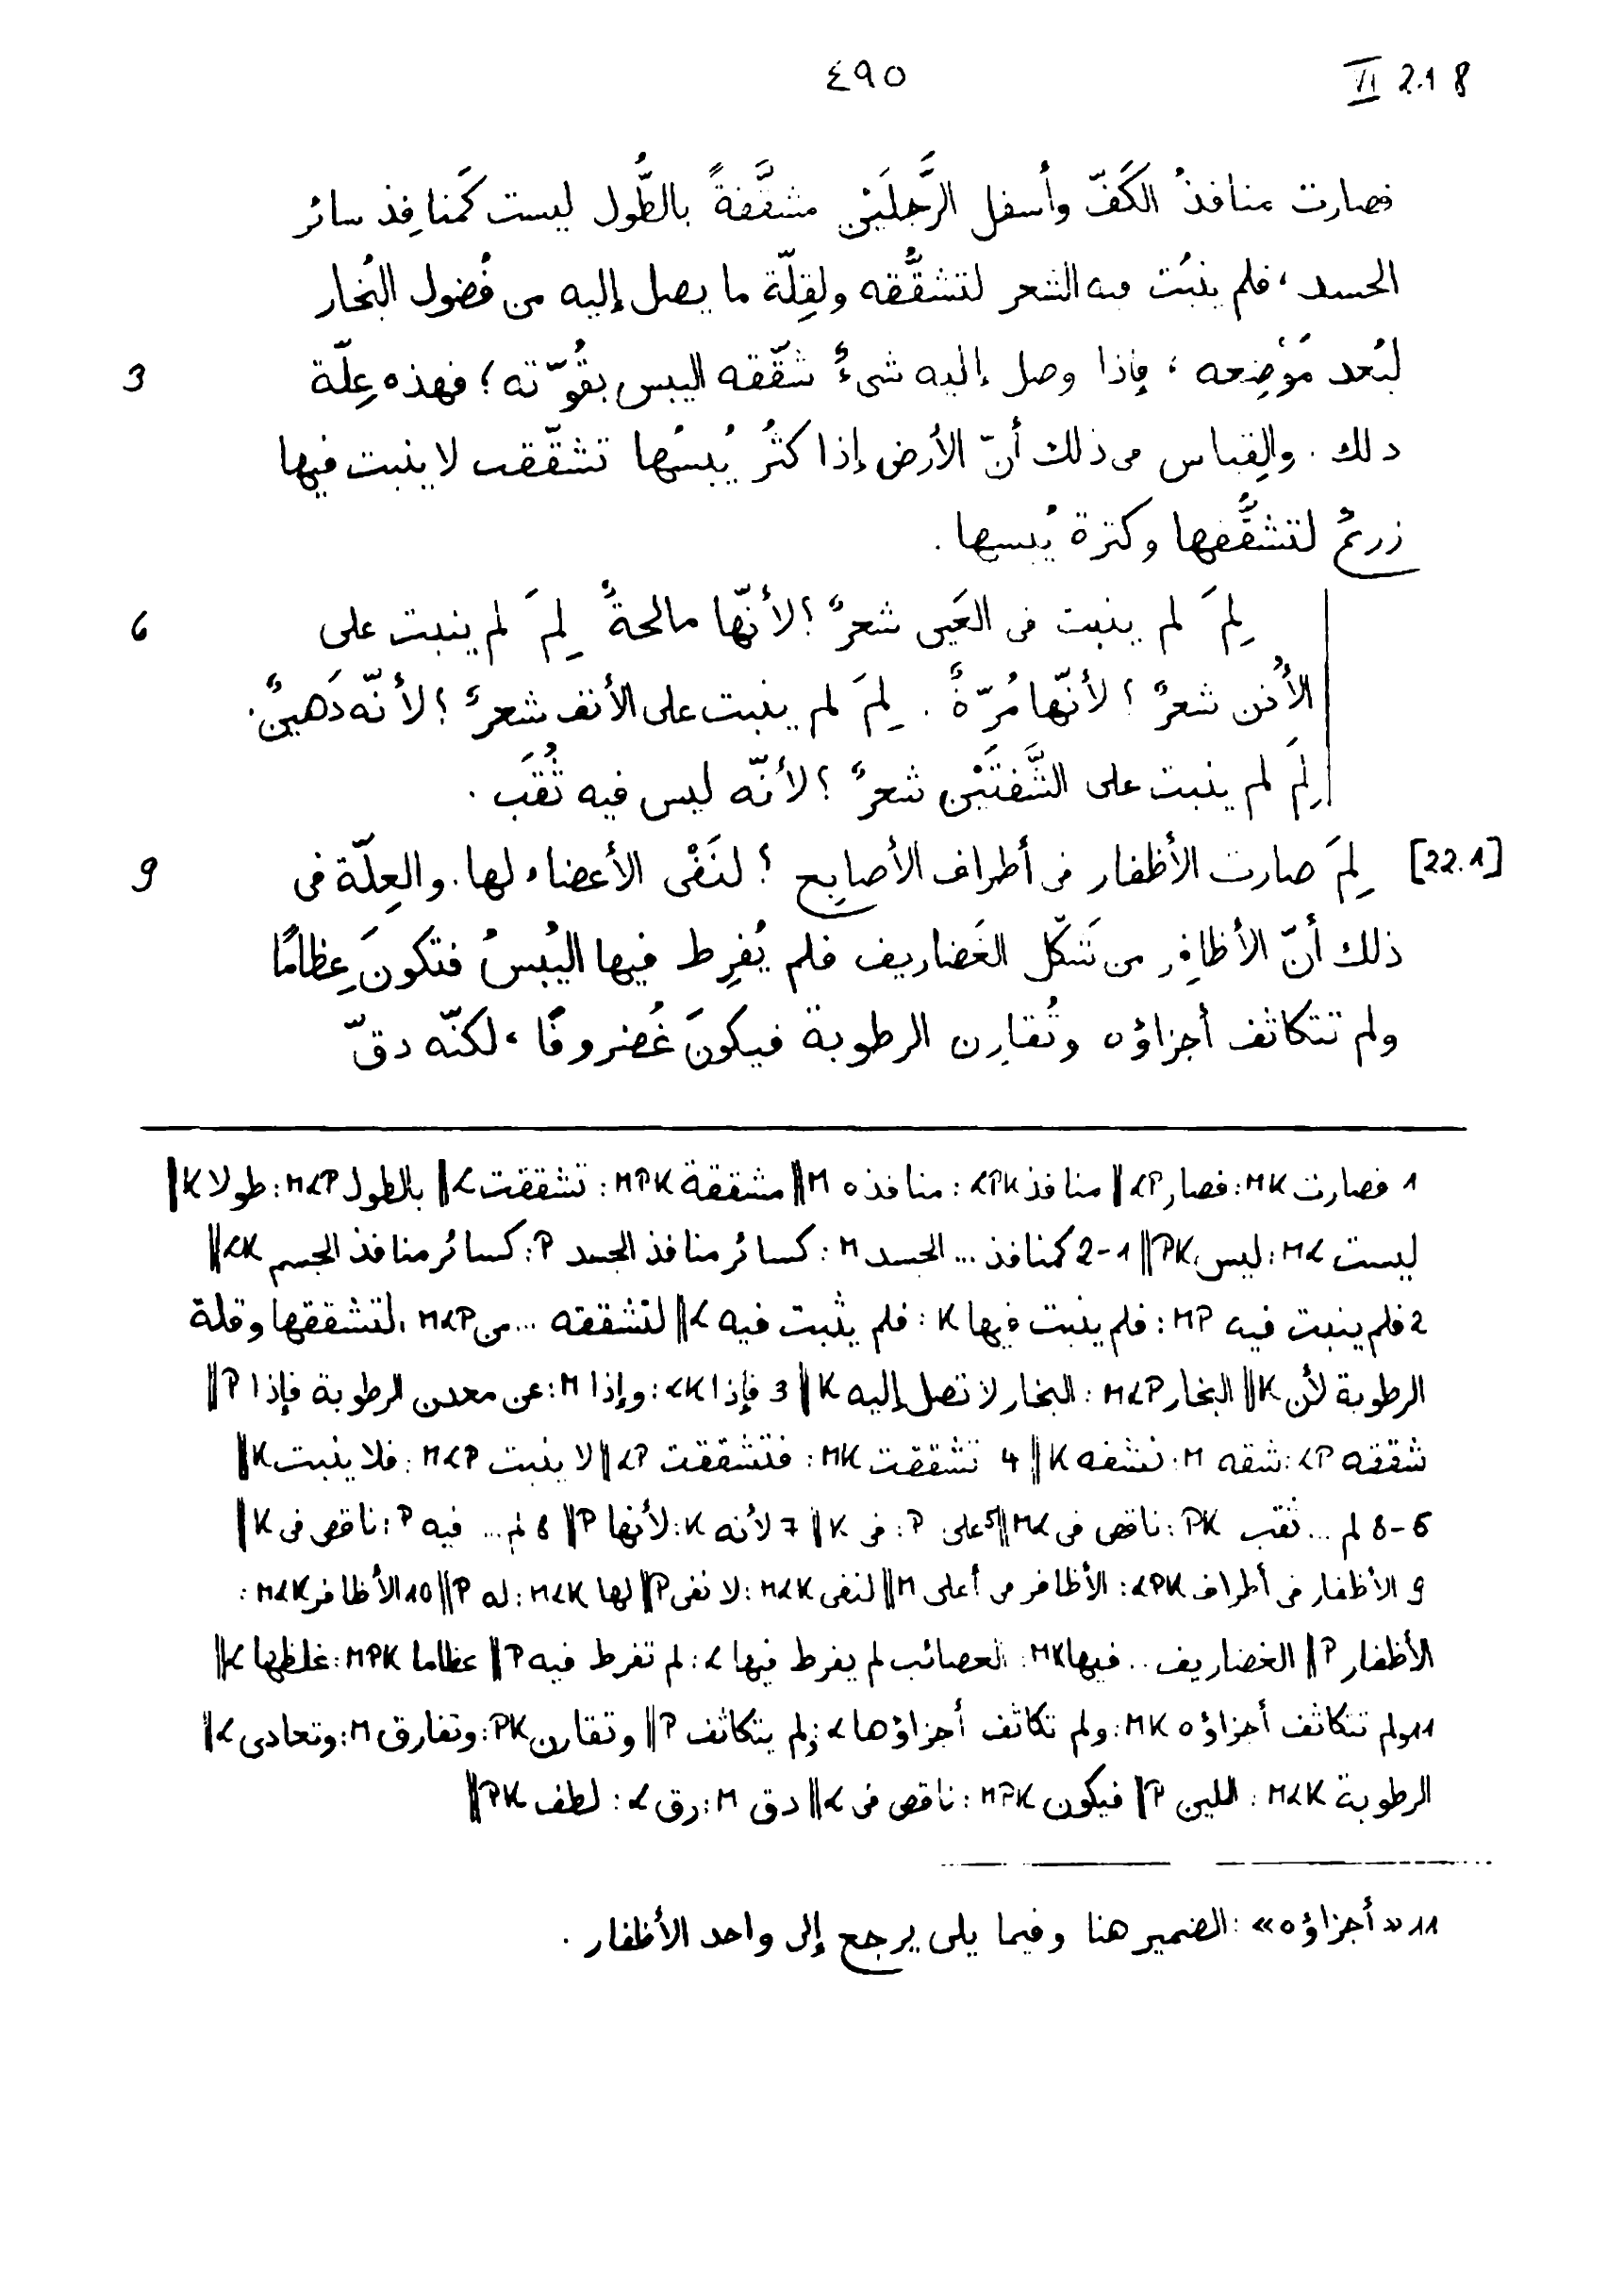 ٤٩٠ VI 2.1 8
فصارت منافذُ الكَفّ وأسفل الرَّجلَيْن مشقَّقةً بالطُّول ليست كَمنافِذ سائر
الجسد، فلم ينبُت فيه الشعر لتشقُّقه ولقِلّة ما يصل إليه من فُضول البُخار
لبُعد مَوْضِعه، فإذا وصل إليه شىءٌ شقّقه اليبس بقُوّته؛ فهذه عِلّة 3
ذلك. والقِياس فى ذلك أنّ الأرض إذا كثُر يُبسُها تشقّقت لا ينبت فيها
زرعٌ لتشقُّقها وكثرة يُبسها.
لِمَ لم ينبت فى العَين شعرٌ؟ لأنّها مالحةٌ لِمَ لم ينبت على 6
الأُذن شعرٌ؟ لأنّها مُرّةٌ. لِمَ لم ينبت على الأنف شعرٌ؟ لأنّه دَهينٌ.
لِمَ لم ينبت على الشَّفتَيْن شعرٌ؟ لأنّه ليس فيه ثُقَب.
[22.1] لِمَ صارت الأظفار فى أطراف الأصابع؟ لنَفْى الأعضاء لها. والعِلّة فى 9
ذلك أنّ الأظافِر من شَكل الغَضاريف فلم يُفرِط فيها اليُبسُ فتكونَ عِظامًا
ولم تتكاثف أجزاؤه وتُقارِن الرطوبة فيكونَ غُضروفًا، لكنّه دقّ
1 فصارت MK: فصار LP ‖ منافذ LPK: منافذه M ‖ مشققة MPK: تشققت L ‖ بالطول MLP: طولا K ‖
ليست ML: ليس PK ‖ 1-2 كمنافذ ... الجسد M: كسائر منافذ الجسد P: كسائر منافذ الجسم LK ‖
2 فلم ينبت فيه MP: فلم ينبت فيها K: فلم يثبت فيه L ‖ لتشققه ... من MLP: لتشققها وقلة
الرطوبة لأن K ‖ البخار MLP: البخار لا تصل إليه K ‖ 3 فإذا LK: وإذا M: عن معدن الرطوبة فإذا P ‖
شققه LP: شقه M: نشفه K ‖ 4 تشققت MK: فتشققت LP ‖ لا ينبت MLP: فلا ينبت K ‖
6-8 لم ... ثقب PK: ناقص فى ML ‖ على P: فى K ‖ 7 لأنه K: لأنها P ‖ 8 لم ... فيه P: ناقص فى K ‖
9 الأظفار فى أطراف LPK: الأظافر فى أعلى M ‖ لنفى MLK: لا نفى P ‖ لها MLK: له P ‖ 10 الأظافر MLK:
الأظفار P ‖ الغضاريف .. فيها MK: العصائب لم يفرط فيها L: لم تفرط فيه P ‖ عظاما MPK: غلظها L ‖
11 ولم تتكاثف أجزاؤه MK: ولم تكاثف أجزاؤها L: ولم يتكاثف P ‖ وتقارن PK: وتفارق M: وتعادى L ‖
الرطوبة MLK: اللين P ‖ فيكون MPK: ناقص فى L ‖ دق M: رق L: لطف PK ‖
11 «أجزاؤه»: الضمير هنا وفيما يلى يرجع إلى واحد الأظفار.